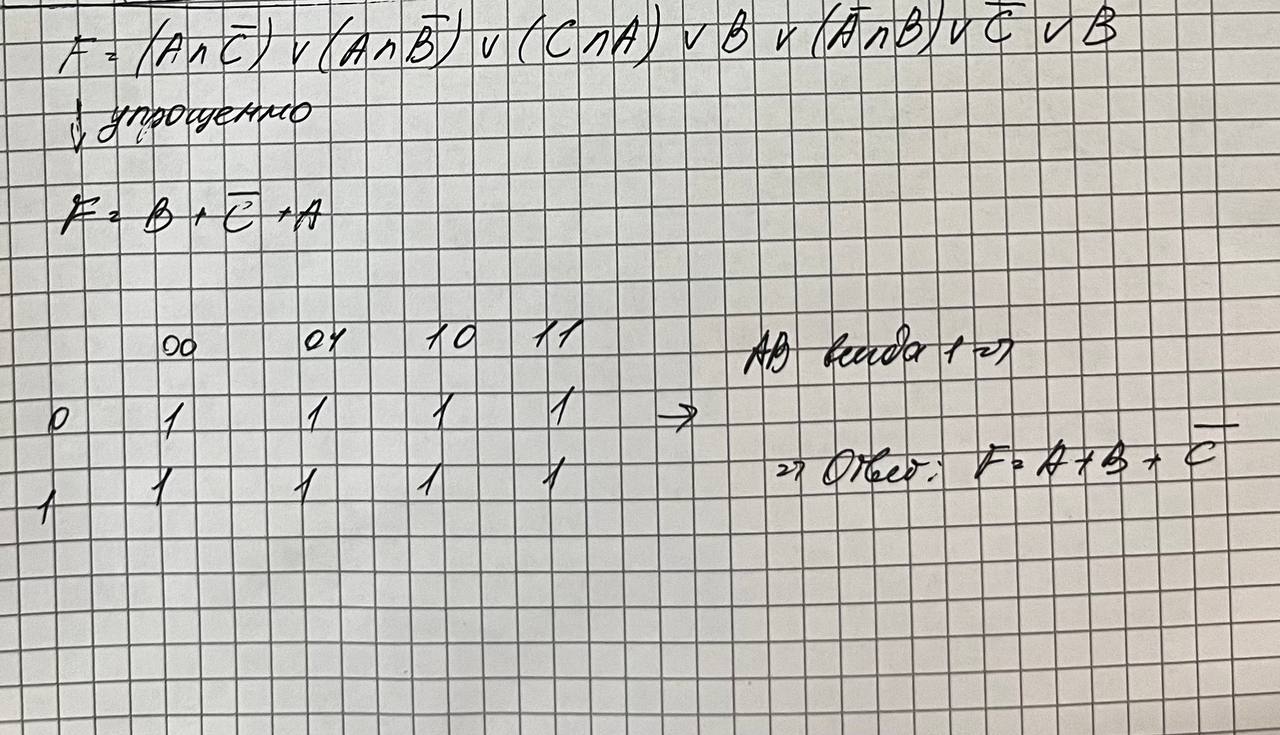 F = (A∩C̅) ∨ (A∩B̅) ∨ (C∩A) ∨ B ∨ (A̅∩B) ∨ C̅ ∨ B
↓ упрощенно
F = B + C̅ + A
00 01 10 11
0 1 1 1 1 →
1 1 1 1 1
AB везде 1 =>
=> Ответ: F = A + B + C̅